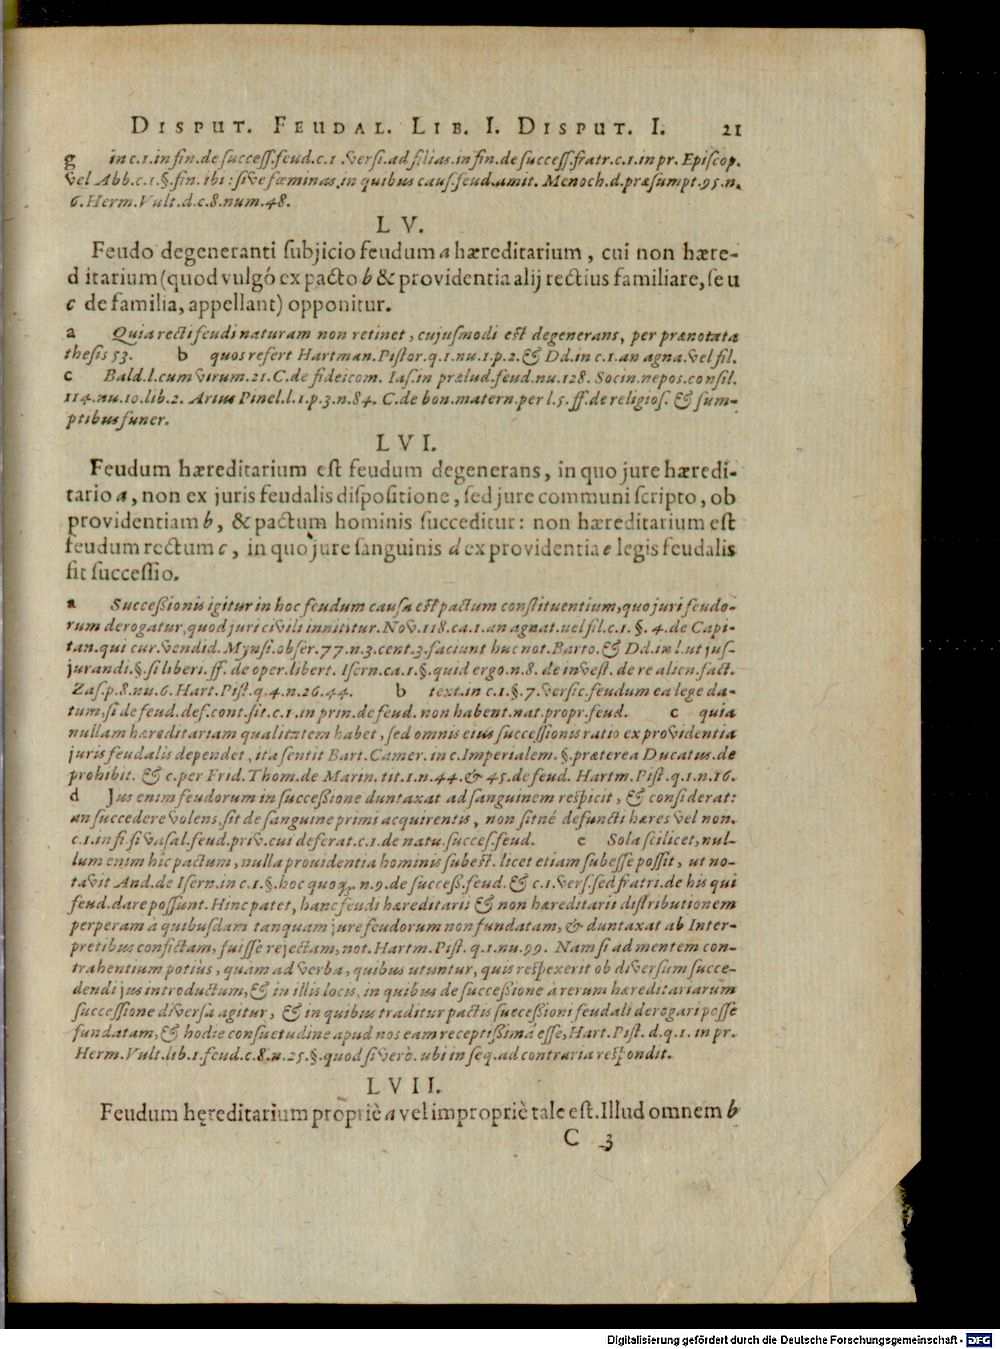 DISPUT. FEUDAL. LIB. I. DISPUT. I. 21
g in c.1. in fin. de successſ. feud. c.1. versi. ad filias. in fin. de success. fratr. c.1. in pr. Episcop.
vel Abb. c.1. §. fin. ibi: sive fœminas. in quibus caus. feud. amit. Menoch. d. præsumpt. 95. n.
6. Herm. Vult. d. c. 8. num. 48.
LV.
Feudo degeneranti ſubjicio feudum a hæreditarium, cui non hære-
ditarium (quod vulgó ex pacto b & providentia alij rectius familiare, ſeu
c de familia, appellant) opponitur.
a Quia recti feudi naturam non retinet, cujuſmodi eſt degenerans, per prænotata
theſis 53. b quos refert Hartman. Piſtor. q. 1. nu. 1. p. 2. & Dd. in c. 1. an agna. vel fil.
c Bald. l. cum virum. 21. C. de fideicom. Iaſ. in prælud. feud. nu. 128. Socin. nepos. conſil.
114. nu. 10. lib. 2. Arius Pinel. l. 1. p. 3. n. 84. C. de bon. matern. per l. 5. ff. de religioſ. & ſum-
ptibus funer.
LVI.
Feudum hæreditarium eſt feudum degenerans, in quo jure hæredi-
tario a, non ex juris feudalis diſpoſitione, ſed jure communi ſcripto, ob
providentiam b, & pactum hominis ſucceditur: non hæreditarium eſt
feudum rectum c, in quo jure ſanguinis d ex providentia e legis feudalis
fit ſucceſſio.
a Succeßionis igitur in hoc feudum cauſa eſt pactum conſtituentium, quo juri feudo-
rum derogatur, quod juri civili innititur. Nov. 118. ca. 1. an agnat. vel fil. c. 1. §. 4. de Capi-
tan. qui cur. vendid. Mynſ. obſer. 77. n. 3. cent. 3. faciunt huc not. Barto. & Dd. in l. ut juſ-
jurandi. §. ſi liberi. ff. de oper. libert. Iſern. ca. 1. §. quid ergo. n. 8. de inveſt. de re alien. fact.
Zaſ. p. 8. nu. 6. Hart. Piſt. q. 4. n. 26. 44. b text. in c. 1. §. 7. verſic. feudum ea lege da-
tum, ſi de feud. def. cont. ſit. c. 1. in prin. de feud. non habent. nat. propr. feud. c quia
nullam hæreditariam qualitatem habet, ſed omnis eius ſucceſſionis ratio ex providentia
juris feudalis dependet, ita ſentit Bart. Camer. in c. Imperialem. §. præterea Ducatus. de
prohibit. & c. per Frid. Thom. de Marin. tit. 1. n. 44. & 45. de feud. Hartm. Piſt. q. 1. n. 16.
d Jus enim feudorum in ſucceßione duntaxat ad ſanguinem reſpicit, & conſiderat:
an ſuccedere volens, ſit de ſanguine primi acquirentis, non ſitné defuncti hæres vel non.
c. 1. in fi. ſi vaſal. feud. priv. cui deferat. c. 1. de natu. ſucceſ. feud. e Sola ſcilicet, nul-
lum enim hic pactum, nulla providentia hominis ſubeſt. licet etiam ſubeſſe poſſit, ut no-
tavit And. de Iſern. in c. 1. §. hoc quoq;. n. 9. de ſucceß. feud. & c. 1. verſ. ſed fratri. de his qui
feud. dare poſſunt. Hinc patet, hanc feudi hæreditarii & non hæreditarii diſtributionem
perperam à quibuſdam tanquam jure feudorum non fundatam, & duntaxat ab Inter-
pretibus confictam, fuiſſe rejectam, not. Hartm. Piſt. q. 1. nu. 99. Nam ſi ad mentem con-
trahentium potius, quàm ad verba, quibus utuntur, quis reſpexerit ob diverſum ſucce-
dendi jus introductum, & in illis locis, in quibus de ſucceßione à rerum hæreditariarum
ſucceſſione diverſa agitur, & in quibus traditur pactis ſucceßioni feudali derogari poſſe
fundatam, & hodie conſuetudine apud nos eam receptißimā eſſe, Hart. Piſt. d. q. 1. in pr.
Herm. Vult. lib. 1. feud. c. 8. n. 25. §. quod ſi verò. ubi in ſeq. ad contraria reſpondit.
LVII.
Feudum hęreditarium propriè a vel impropriè tale eſt. Illud omnem b
C 3
Digitalisierung gefördert durch die Deutsche Forschungsgemeinschaft - DFG